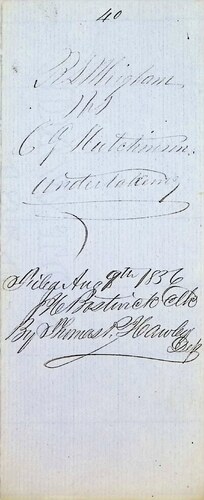 40
R S Whigham
vs
C G Hutchinson
Undertaking
Filed Aug 9th 1856
J H Bostwick Clk
By Thomas P. Hawley
Dep